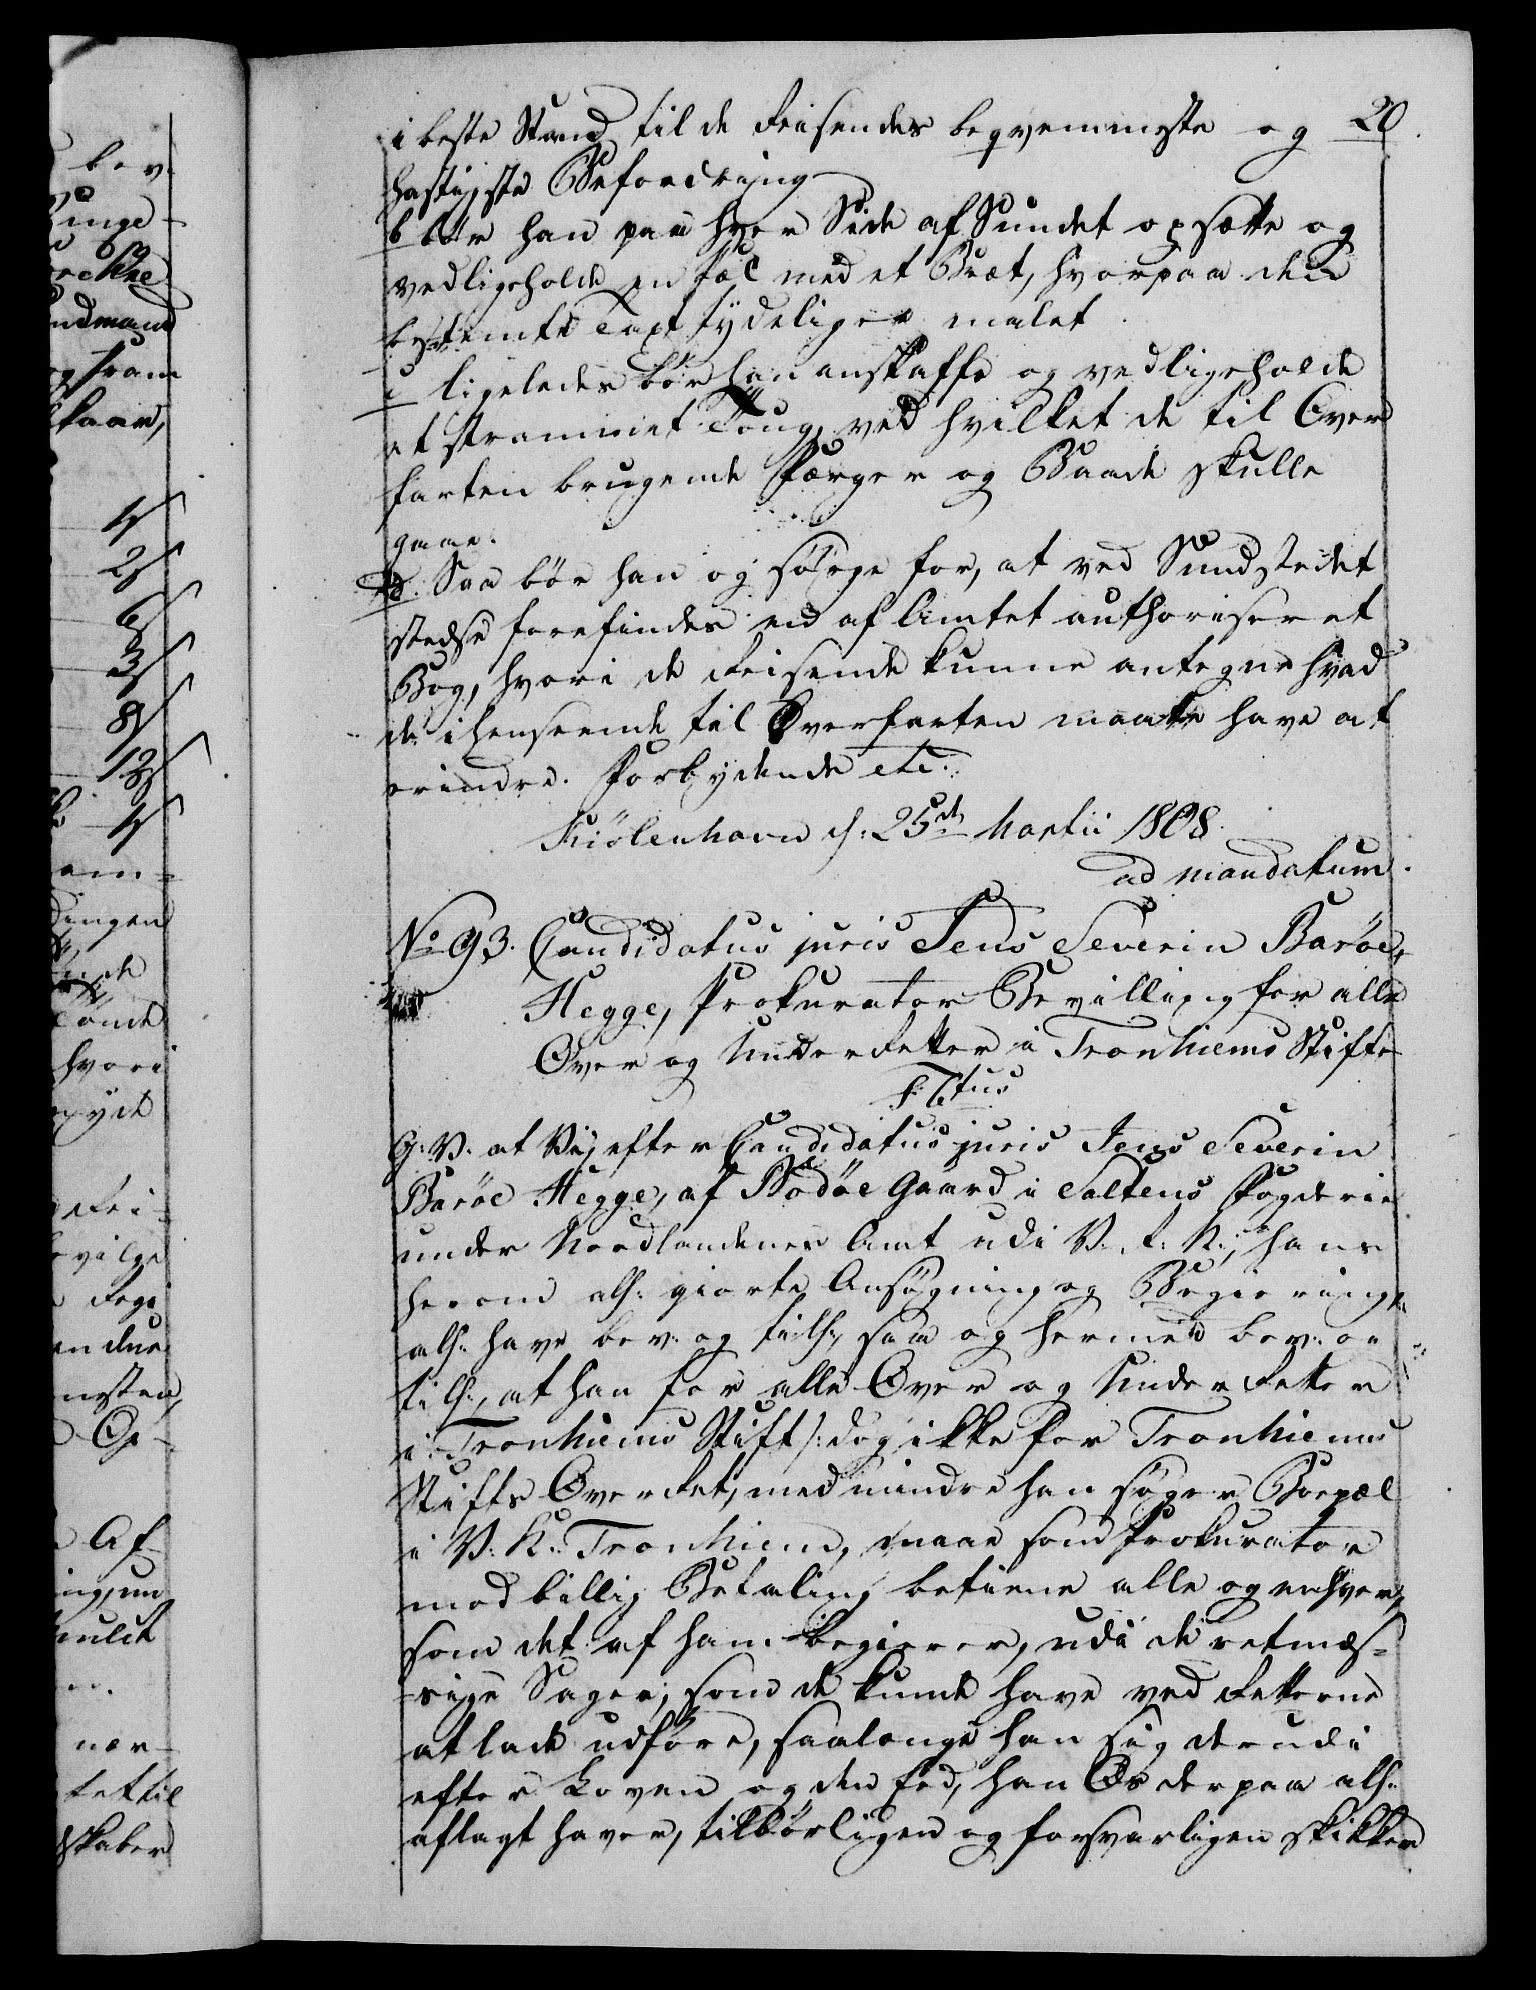 20
i beste Stand til de Reisendes beqvemmeste og
hastigste Befordring
b bør han paa hver Side af Sundet opsætte og
vedligeholde en Pæl med et Bræt, hvorpaa den
bestemte Taxt tydeligen malet.
c ligeledes bør han anskaffe og vedligeholde
et strammet Toug, ved hvilket de til Over
farten brugende Færger og Baade skulle
gaae.
d. Saa bør han og sørge for, at ved Sundstedet
stedse forefindes en af Amtet authoriseret
Bog, hvori de Reisende kunne antegne hvad
de i henseende til Overfarten maatte have at
erindre. Forbydende etc.
Kiøbenhavn d: 25de Martii 1808.
ad mandatum.
No 93. Candidatus juris Jens Severin Barøe
Hegge, Prokurator Bevilling for alle
Over og Underretter i Tronhiems Stift
F: 6tus
G: V. at Vi, efter Candidatus juris Jens Severin
Barøe Hegge, af Bodøe Gaard i Saltens Fogderie
under Nordlandenes Amt udi V. R: N:, hans
herom alh: giorte Ansøgning og Begiering
alh: have bev: og tilh:, saa og hermed bev: og
tilh:, at han for alle Over og Underretter
i Tronhiems Stift /: dog ikke for Tronhiems
Stifts Overret, med mindre han søger Boepæl
i V: K: Tronhiem, maae som Prokurator
mod billig Betaling betiene alle og enhver,
som det af ham begierer, udi de retmæs-
-sige Sager, som de kunde have ved Retterne
at lade udføre, saalænge han sig derudi
efter Loven og den Eed, han Os derpaa alh:
aflagt haver, tilbørligen og forsvarligen skikker